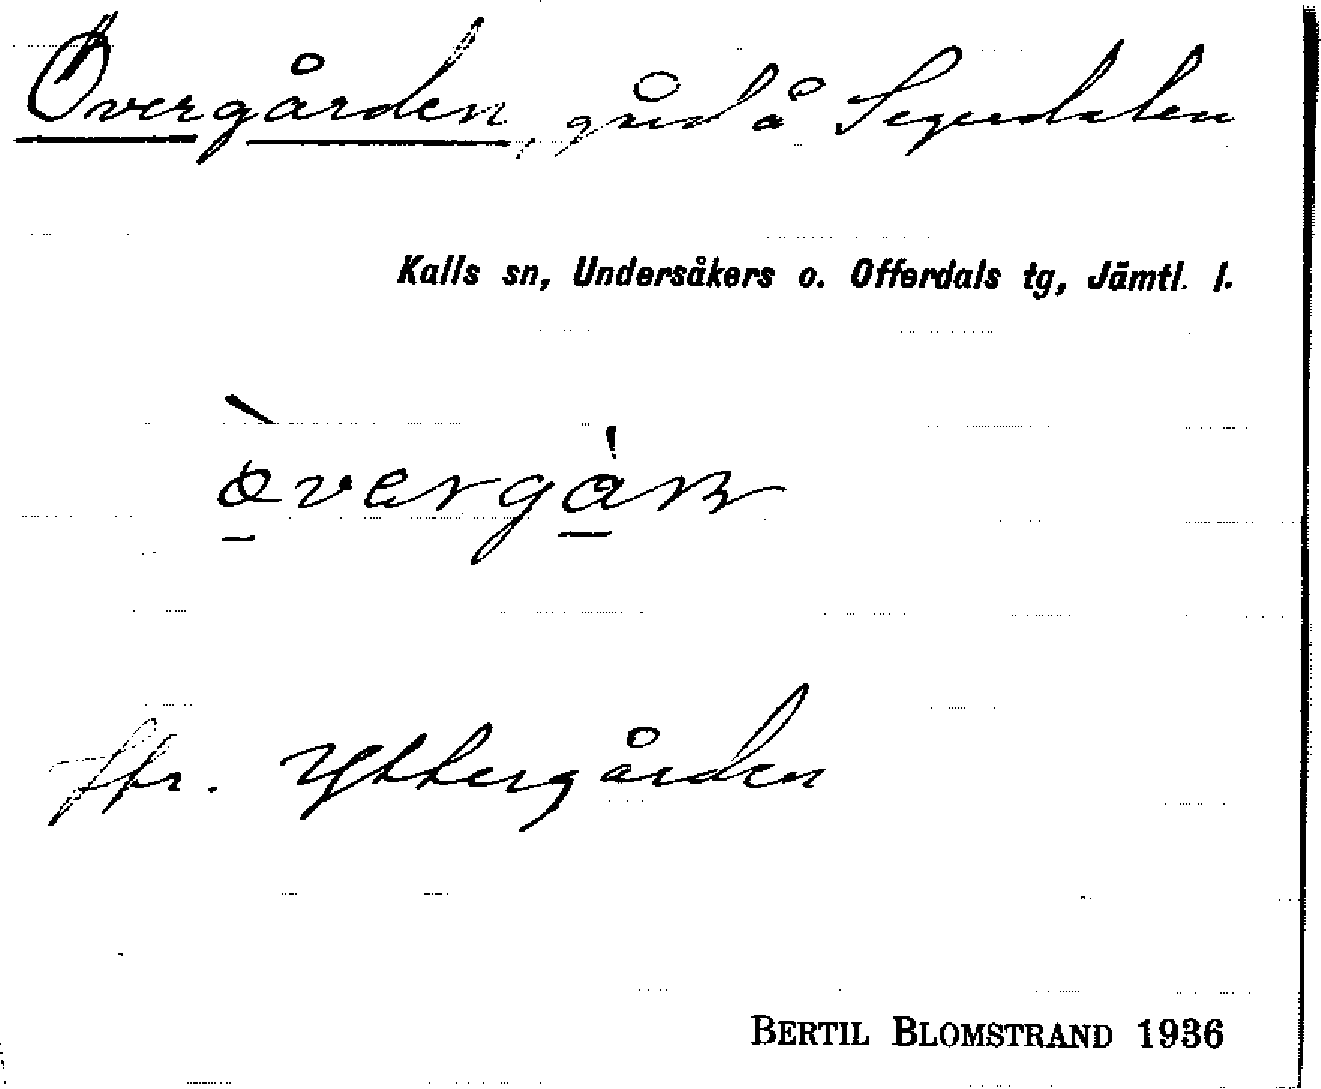 Övergården, gård å Segerdalen
Kalls sn, Undersåkers o. Offerdals tg, Jämtl. l.
Jfr. Yttergården
BERTIL BLOMSTRAND 1936